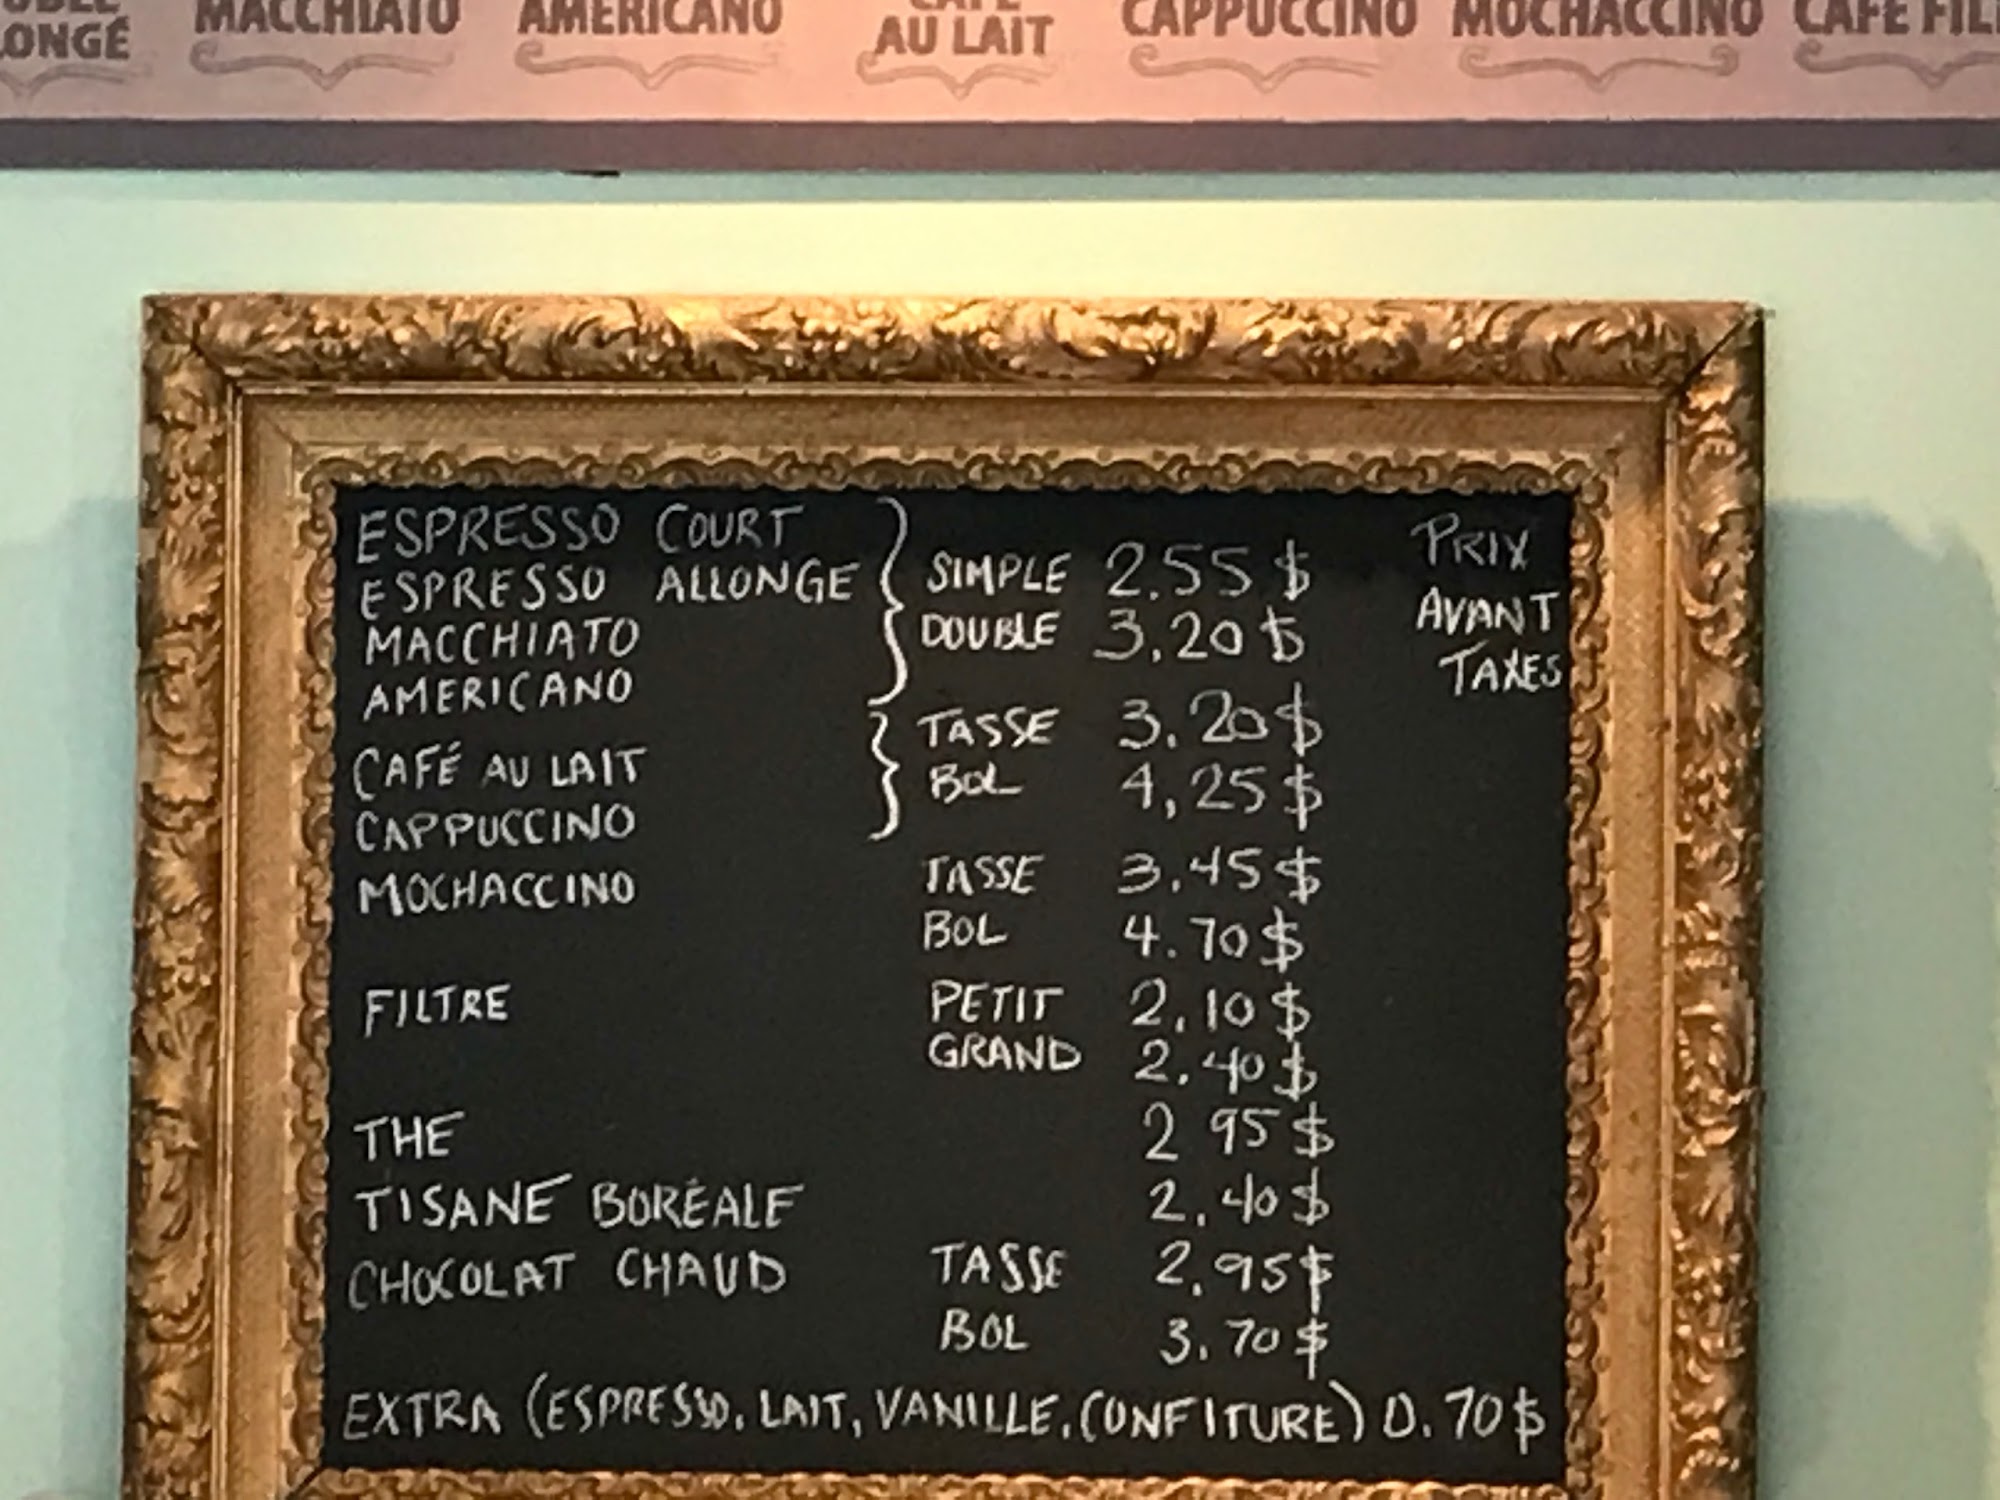 MACCHIATO AMERICANO CAFÉ AU LAIT CAPPUCCINO MOCHACCINO CAFÉ
ESPRESSO COURT
ESPRESSO ALLONGE
MACCHIATO
AMERICANO
SIMPLE 2.55 $
DOUBLE 3.20 $
PRIX
AVANT
TAXES
CAFÉ AU LAIT
CAPPUCCINO
TASSE 3.20 $
BOL 4,25 $
MOCHACCINO TASSE 3.45 $
BOL 4.70 $
FILTRE PETIT 2.10 $
GRAND 2.40 $
THE 2 95 $
TISANE BORÉALE 2.40 $
CHOCOLAT CHAUD TASSE 2.95 $
BOL 3.70 $
EXTRA (ESPRESSO, LAIT, VANILLE, CONFITURE) 0.70 $